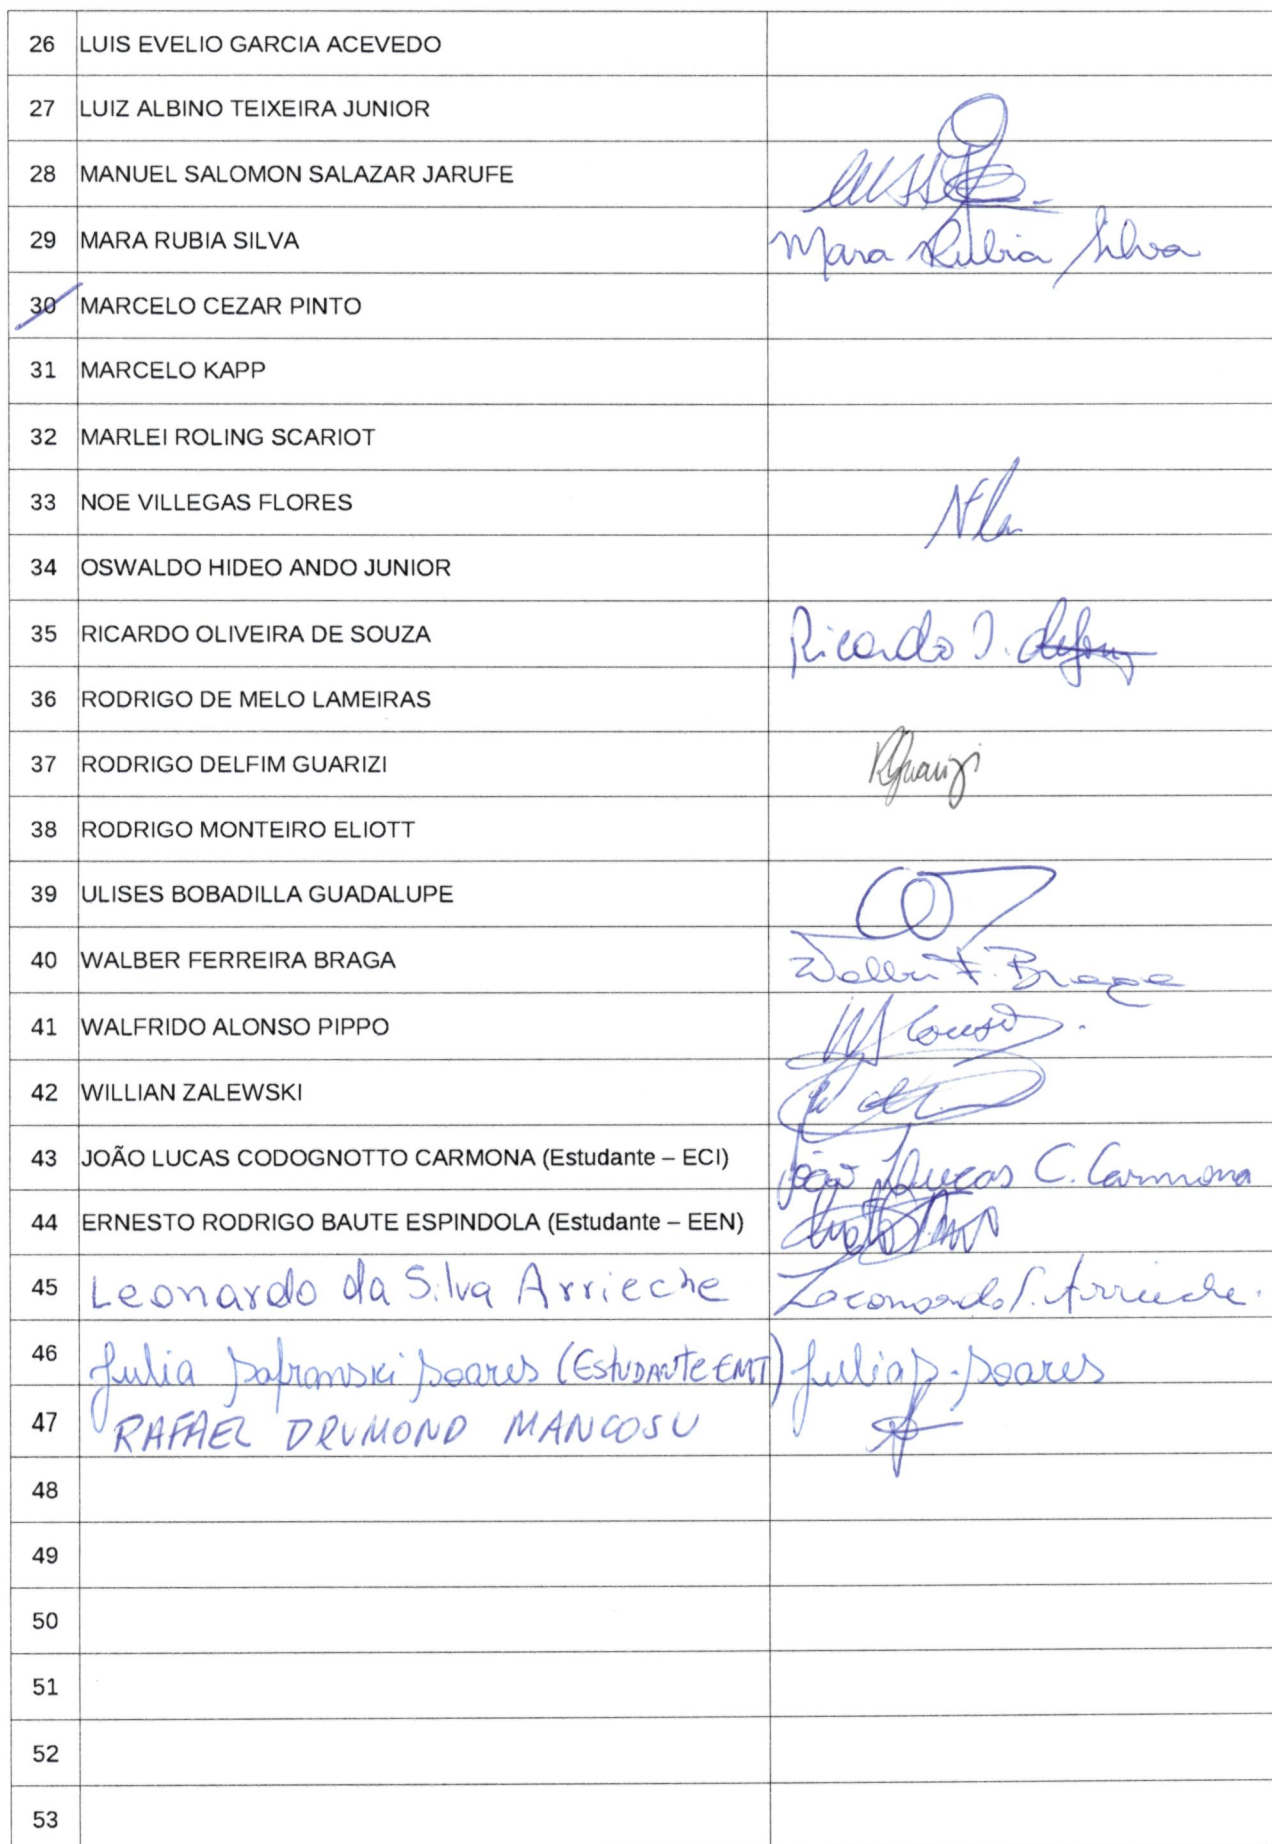 26 LUIS EVELIO GARCIA ACEVEDO
27 LUIZ ALBINO TEIXEIRA JUNIOR
28 MANUEL SALOMON SALAZAR JARUFE
29 MARA RUBIA SILVA Mara Rubia Silva
30 MARCELO CEZAR PINTO
31 MARCELO KAPP
32 MARLEI ROLING SCARIOT
33 NOE VILLEGAS FLORES
34 OSWALDO HIDEO ANDO JUNIOR
35 RICARDO OLIVEIRA DE SOUZA Ricardo
36 RODRIGO DE MELO LAMEIRAS
37 RODRIGO DELFIM GUARIZI RGuarizi
38 RODRIGO MONTEIRO ELIOTT
39 ULISES BOBADILLA GUADALUPE
40 WALBER FERREIRA BRAGA Walber F. Braga
41 WALFRIDO ALONSO PIPPO
42 WILLIAN ZALEWSKI
43 JOÃO LUCAS CODOGNOTTO CARMONA (Estudante – ECI) João Lucas C. Carmona
44 ERNESTO RODRIGO BAUTE ESPINDOLA (Estudante – EEN)
45 Leonardo da Silva Arrieche Leonardo S. Arrieche.
46 Julia Safranski Soares (ESTUDANTE EMT) Julia S. Soares
47 RAFAEL DRUMOND MANCOSU
48
49
50
51
52
53